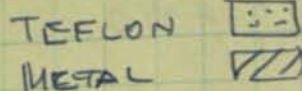 TEFLON
METAL